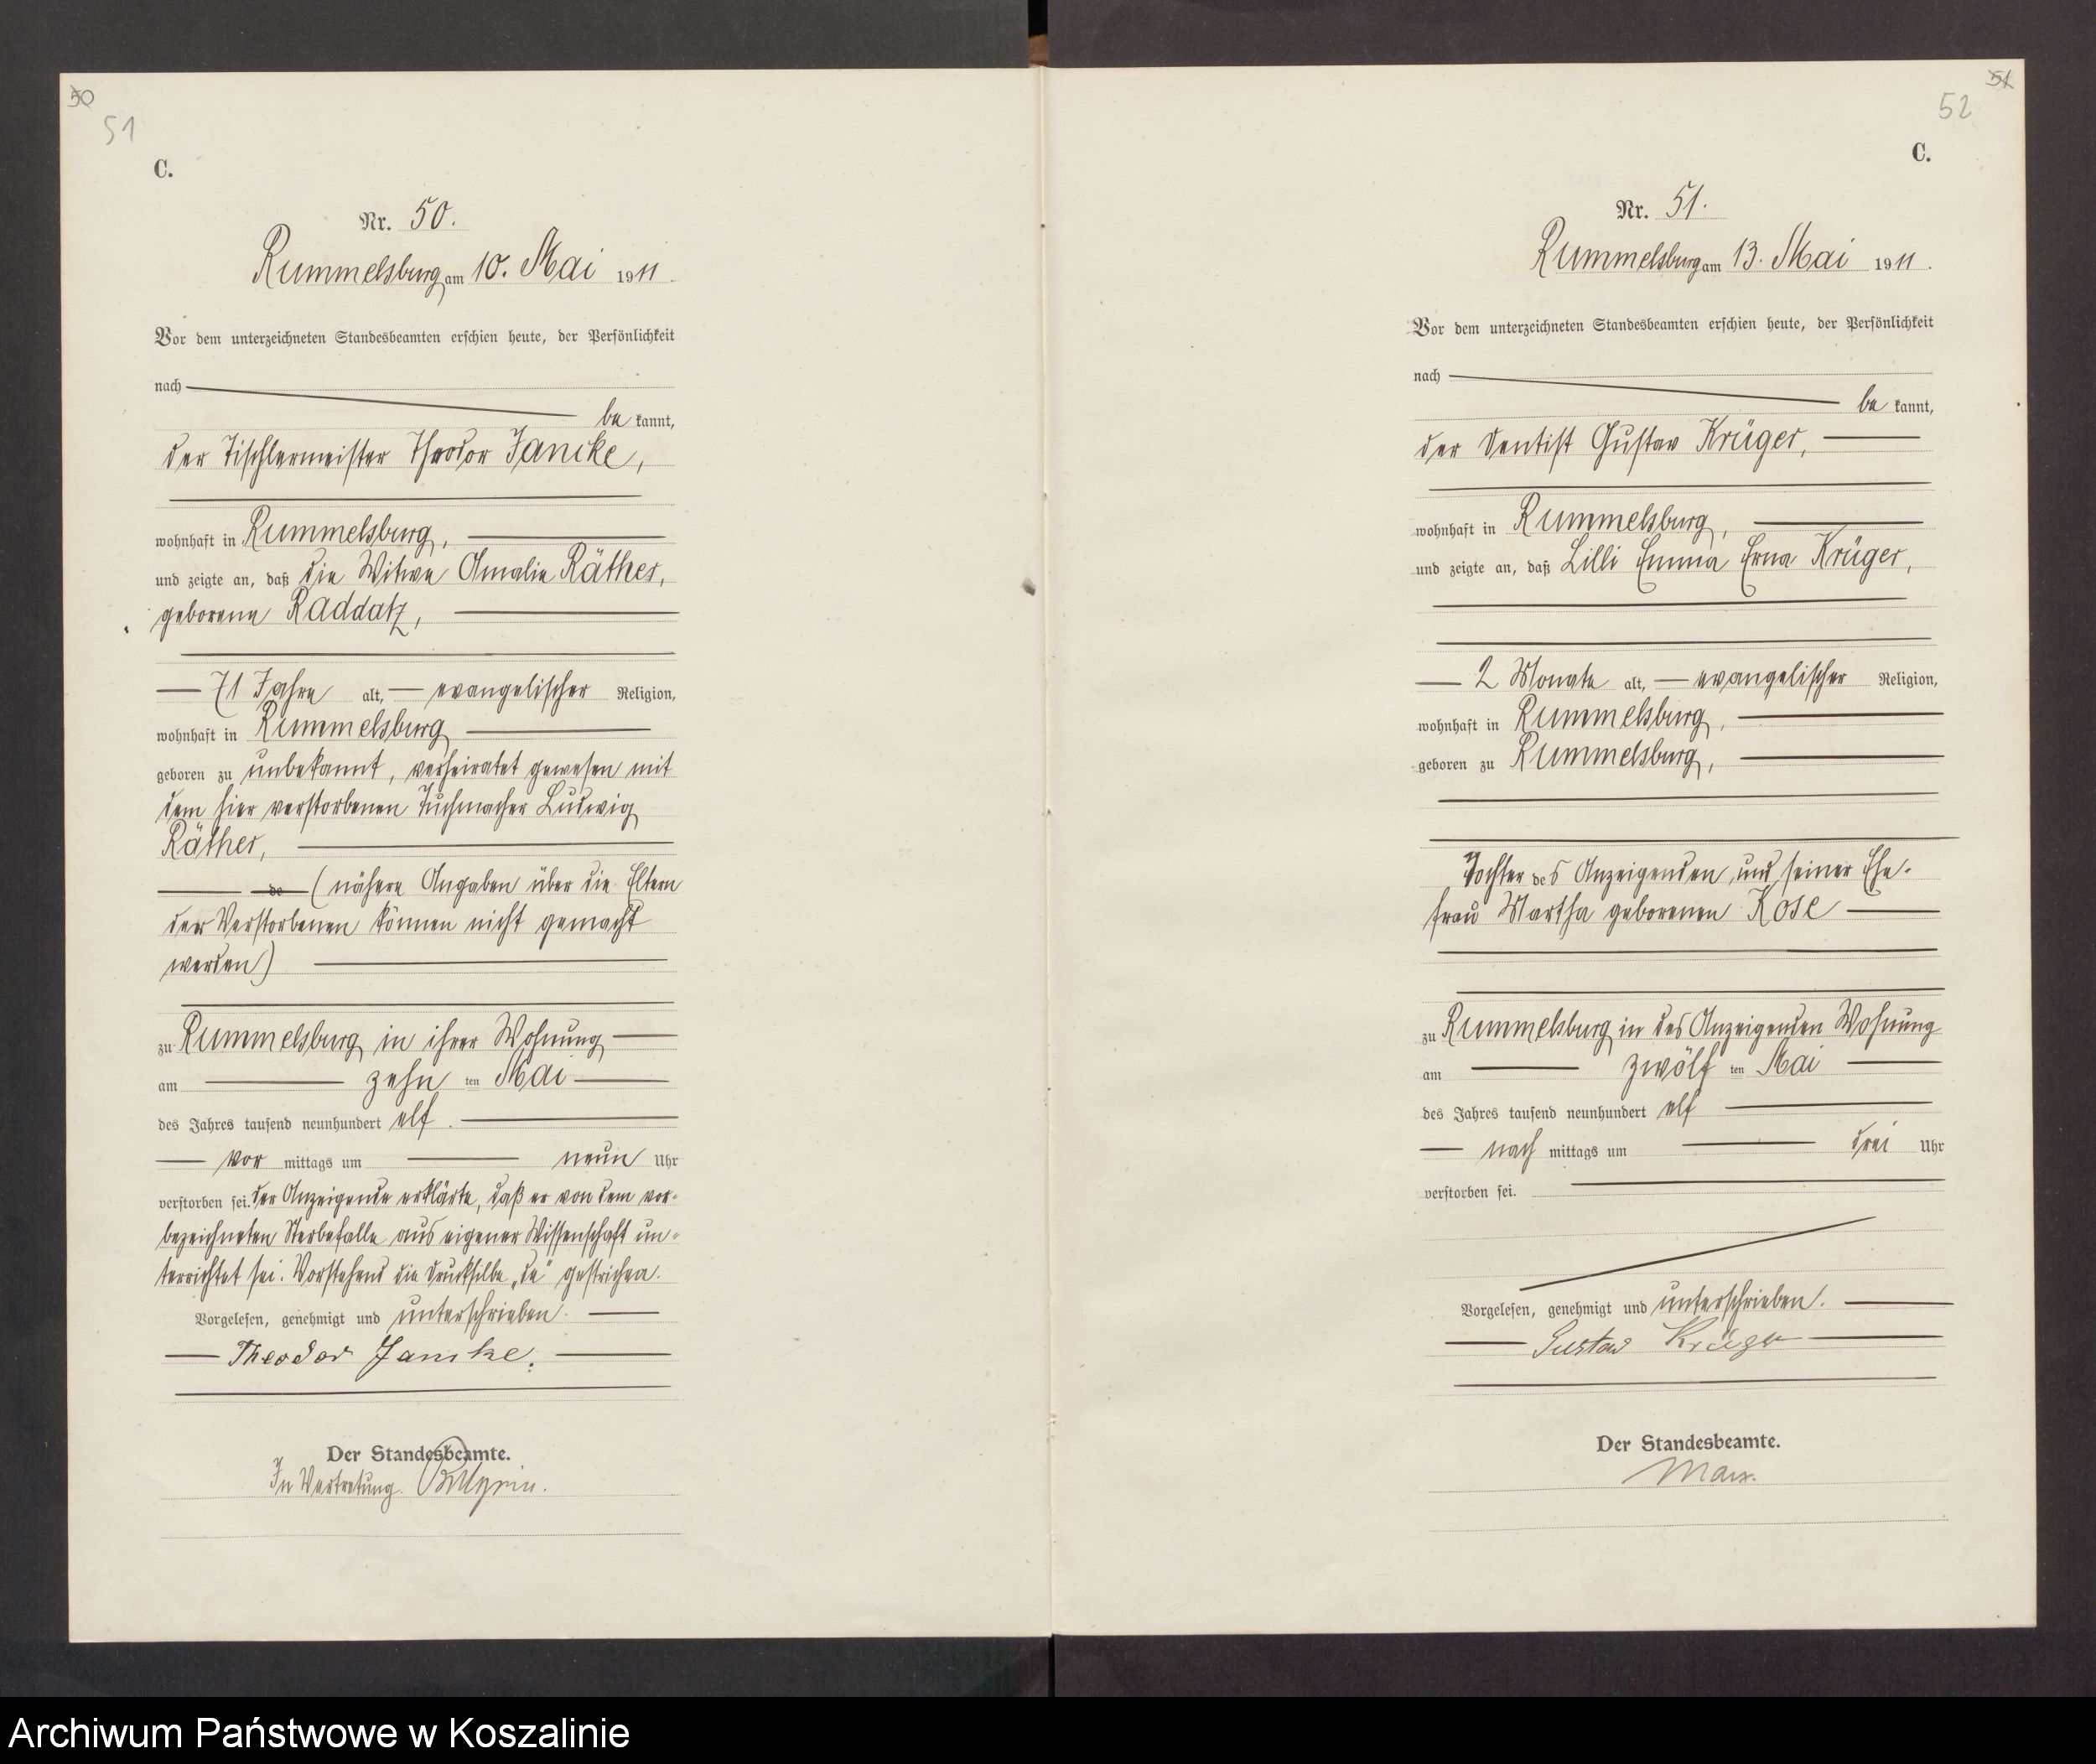 50
51
C.
Nr. 50.
Rummelsburg am 10. Mai 1911.
Vor dem unterzeichneten Standesbeamten erschien heute, der Persönlichkeit
nach
be kannt,
der Tischlermeister Theodor Jancke,
wohnhaft in Rummelsburg,
und zeigte an, daß die Witwe Amalie Räther,
geborene Raddatz,
71 Jahre alt, evangelischer Religion,
wohnhaft in Rummelsburg
geboren zu unbekannt, verheiratet gewesen mit
dem hier verstorbenen Tuchmacher Ludwig
Räther,
de (nähere Angaben über die Eltern
der Verstorbenen können nicht gemacht
werden)
zu Rummelsburg in ihrer Wohnung
am zehn ten Mai
des Jahres tausend neunhundert elf.
vor mittags um neun Uhr
verstorben sei. Der Anzeigende erklärte, daß er von dem vor-
bezeichneten Sterbefalle aus eigener Wissenschaft un-
terrichtet sei. Vorstehend die Drucksilbe „de" gestrichen.
Vorgelesen, genehmigt und unterschrieben.
Theodor Jancke.
Der Standesbeamte.
In Vertretung
51
52
C.
Nr. 51.
Rummelsburg am 13. Mai 1911.
Vor dem unterzeichneten Standesbeamten erschien heute, der Persönlichkeit
nach
be kannt,
der Dentist Gustav Krüger,
wohnhaft in Rummelsburg,
und zeigte an, daß Lilli Emma Erna Krüger,
2 Monate alt, evangelischer Religion,
wohnhaft in Rummelsburg,
geboren zu Rummelsburg,
Tochter des Anzeigenden und seiner Ehe-
frau Martha geborenen Kose
zu Rummelsburg in des Anzeigenden Wohnung
am zwölf ten Mai
des Jahres tausend neunhundert elf
nach mittags um drei Uhr
verstorben sei.
Vorgelesen, genehmigt und unterschrieben.
Gustav Krüger
Der Standesbeamte.
Marx.
Archiwum Państwowe w Koszalinie